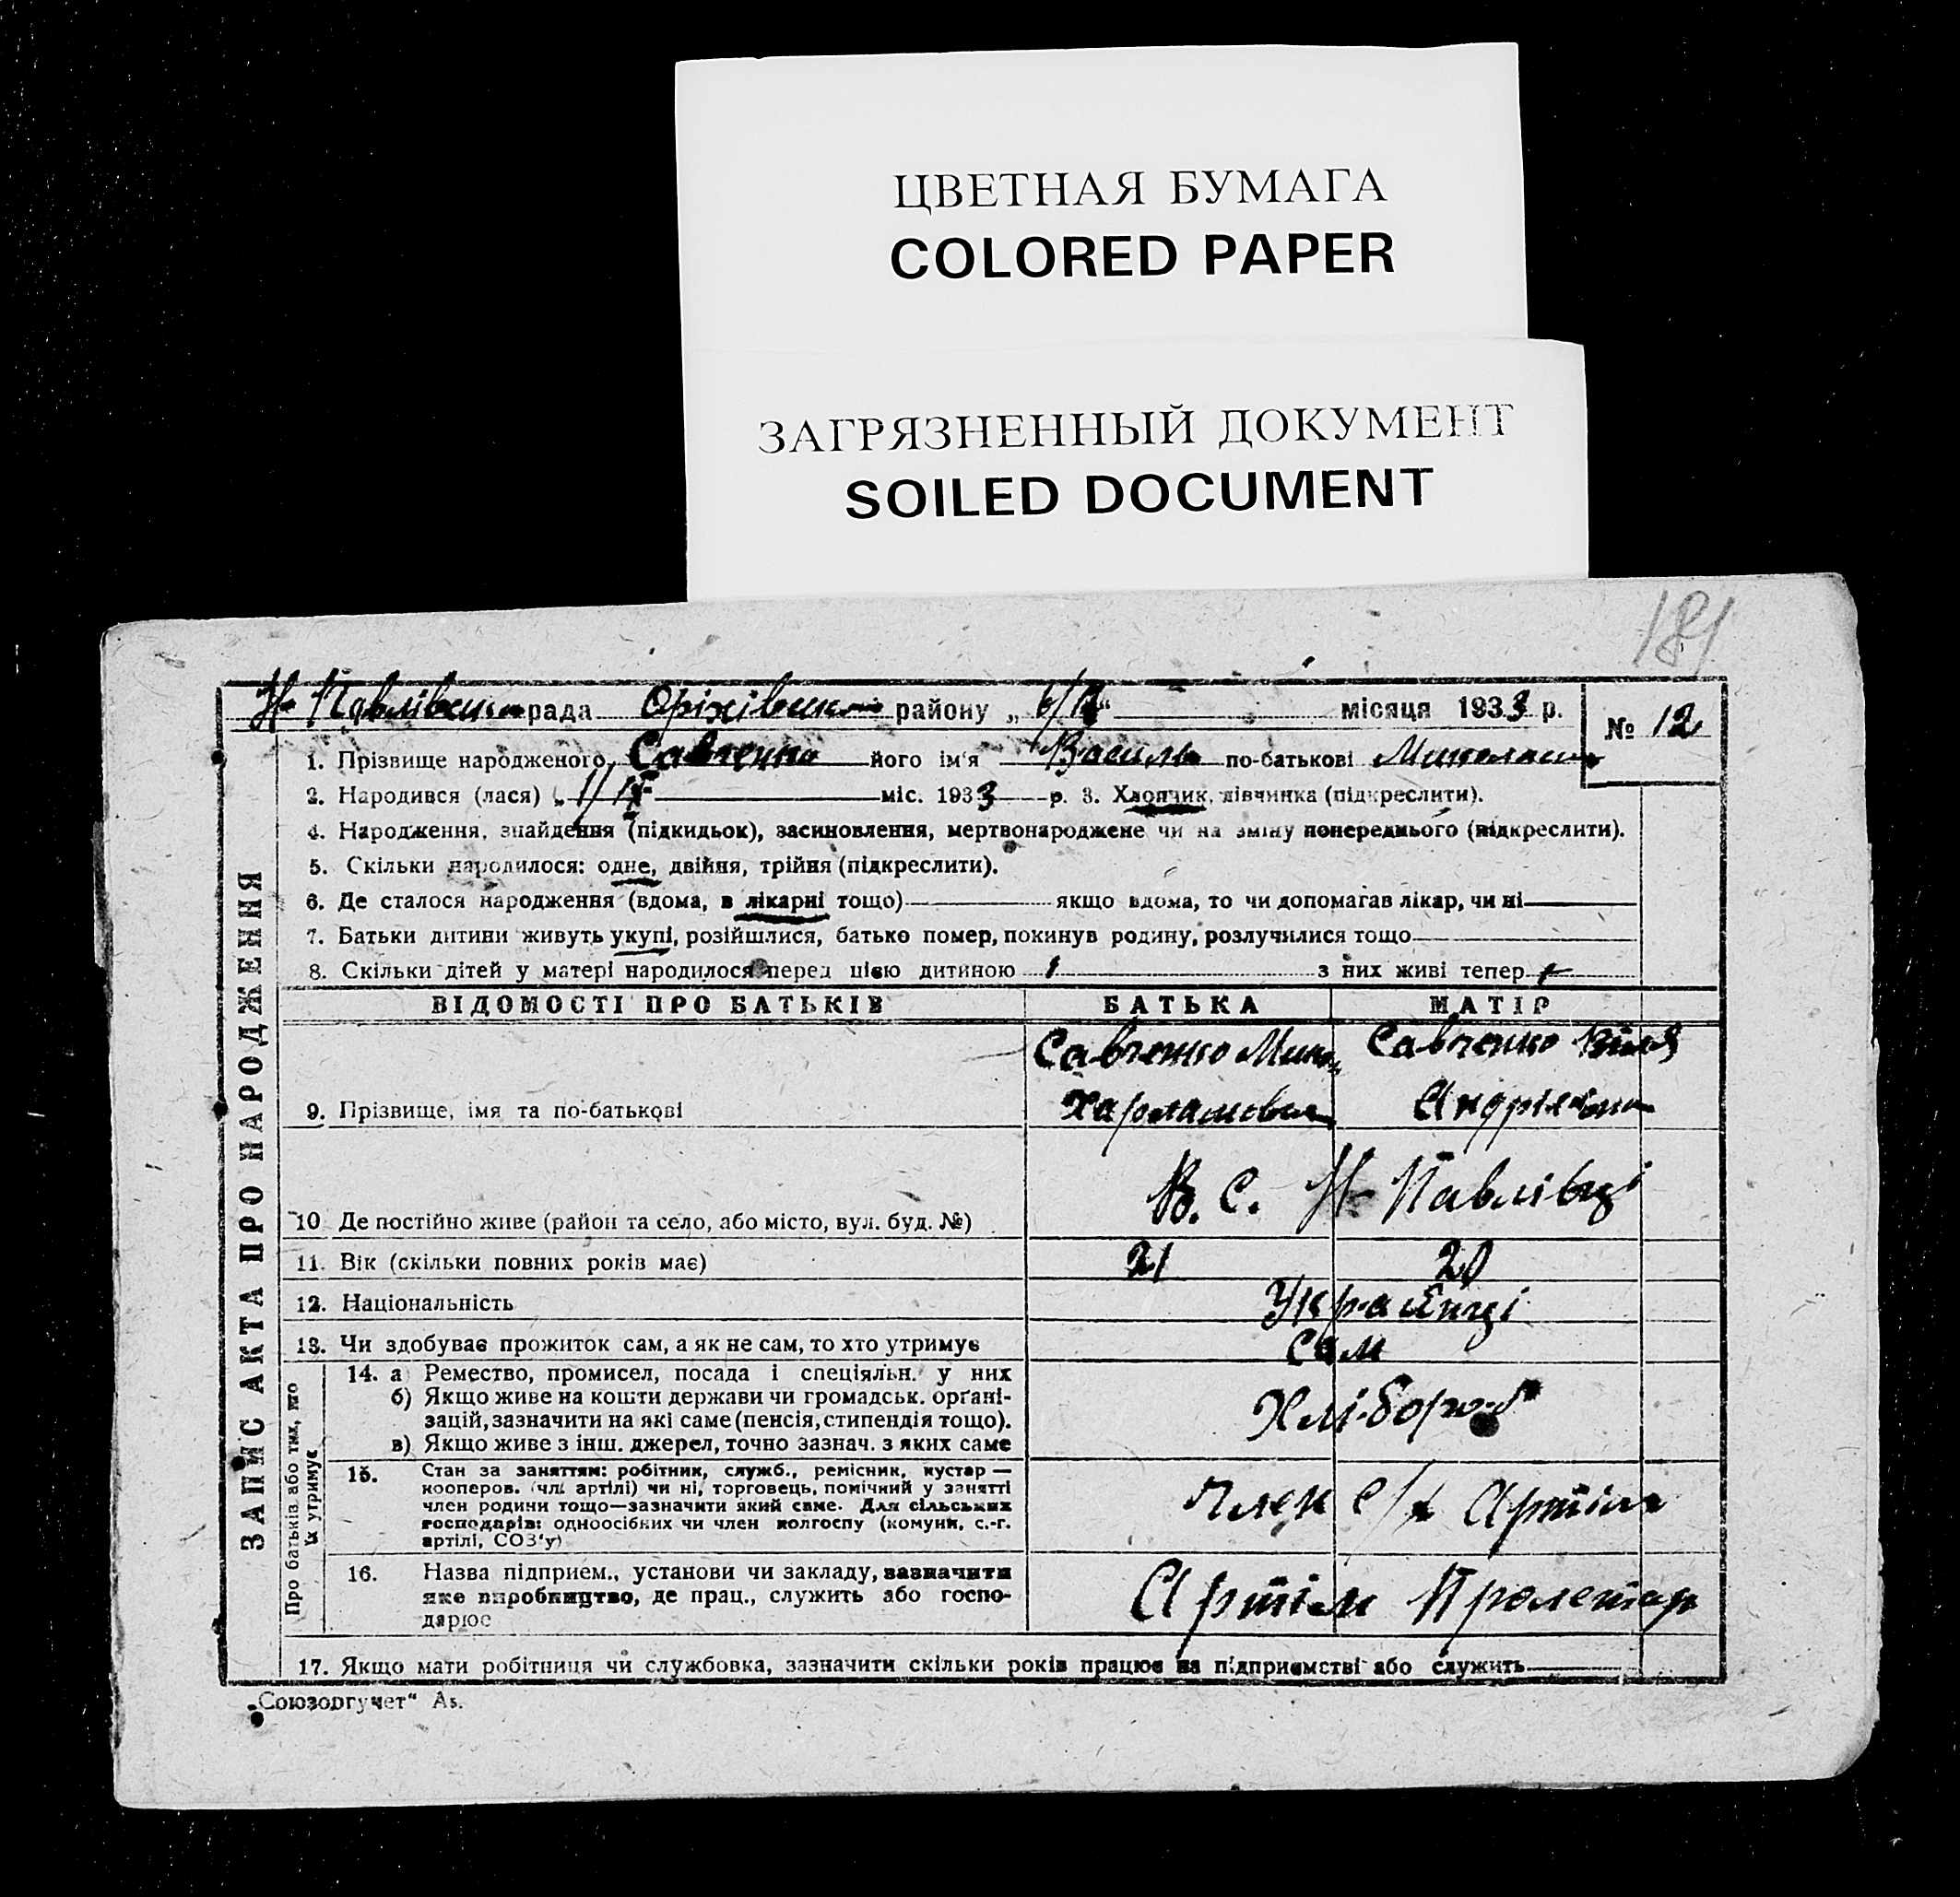 ЦВЕТНАЯ БУМАГА
COLORED PAPER
ЗАГРЯЗНЕННЫЙ ДОКУМЕНТ
SOILED DOCUMENT
181
Н-Павлівська рада Оріхівськ району „6/ “ місяця 1933 р. № 12
1. Прізвище народженого Савченко його ім'я Василь по-батькові
2. Народився (лася) „1/ міс. 1933 р. 3. Хлопчик, дівчинка (підкреслити).
4. Народження, знайдення (підкидьок), засиновлення, мертвонароджене чи на зміну попереднього (підкреслити).
5. Скільки народилося: одне, двійня, трійня (підкреслити).
6. Де сталося народження (вдома, в лікарні тощо) якщо вдома, то чи допомагав лікар, чи ні
7. Батьки дитини живуть укупі, розійшлися, батько помер, покинув родину, розлучилися тощо
8. Скільки дітей у матері народилося перед цією дитиною 1 з них живі тепер 1
ЗАПИС АКТА ПРО НАРОДЖЕННЯ
ВІДОМОСТІ ПРО БАТЬКІВ БАТЬКА МАТІР
Савченко Савченко
9. Прізвище, імя та по-батькові
10. Де постійно живе (район та село, або місто, вул. буд. №) В. С. Н-Павлівці
11. Вік (скільки повних років має) 21 20
12. Національність Українці
13. Чи здобуває прожиток сам, а як не сам, то хто утримує Сам
Про батьків або тих, хто їх утримує
14. а) Ремество, промисел, посада і спеціяльн. у них
б) Якщо живе на кошти держави чи громадськ. орґані-
зацій, зазначити на які саме (пенсія, стипендія тощо). Хлібороб
в) Якщо живе з інш. джерел, точно зазнач. з яких саме
15. Стан за заняттям: робітник, служб., ремісник, кустар —
кооперов. (чл. артілі) чи ні, торговець, помічний у занятті
член родини тощо—зазначити який саме. Для сільських Член с/г Артіли
господарів: одноосібних чи член колгоспу (комуни, с.-г.
артілі, СОЗ'у)
16. Назва підприєм., установи чи закладу, зазначити
яке виробництво, де прац., служить або госпо- Артіль Пролетар
дарює
17. Якщо мати робітниця чи службовка, зазначити скільки років працює на підприємстві або служить
„Союзоргучет“ Аз.